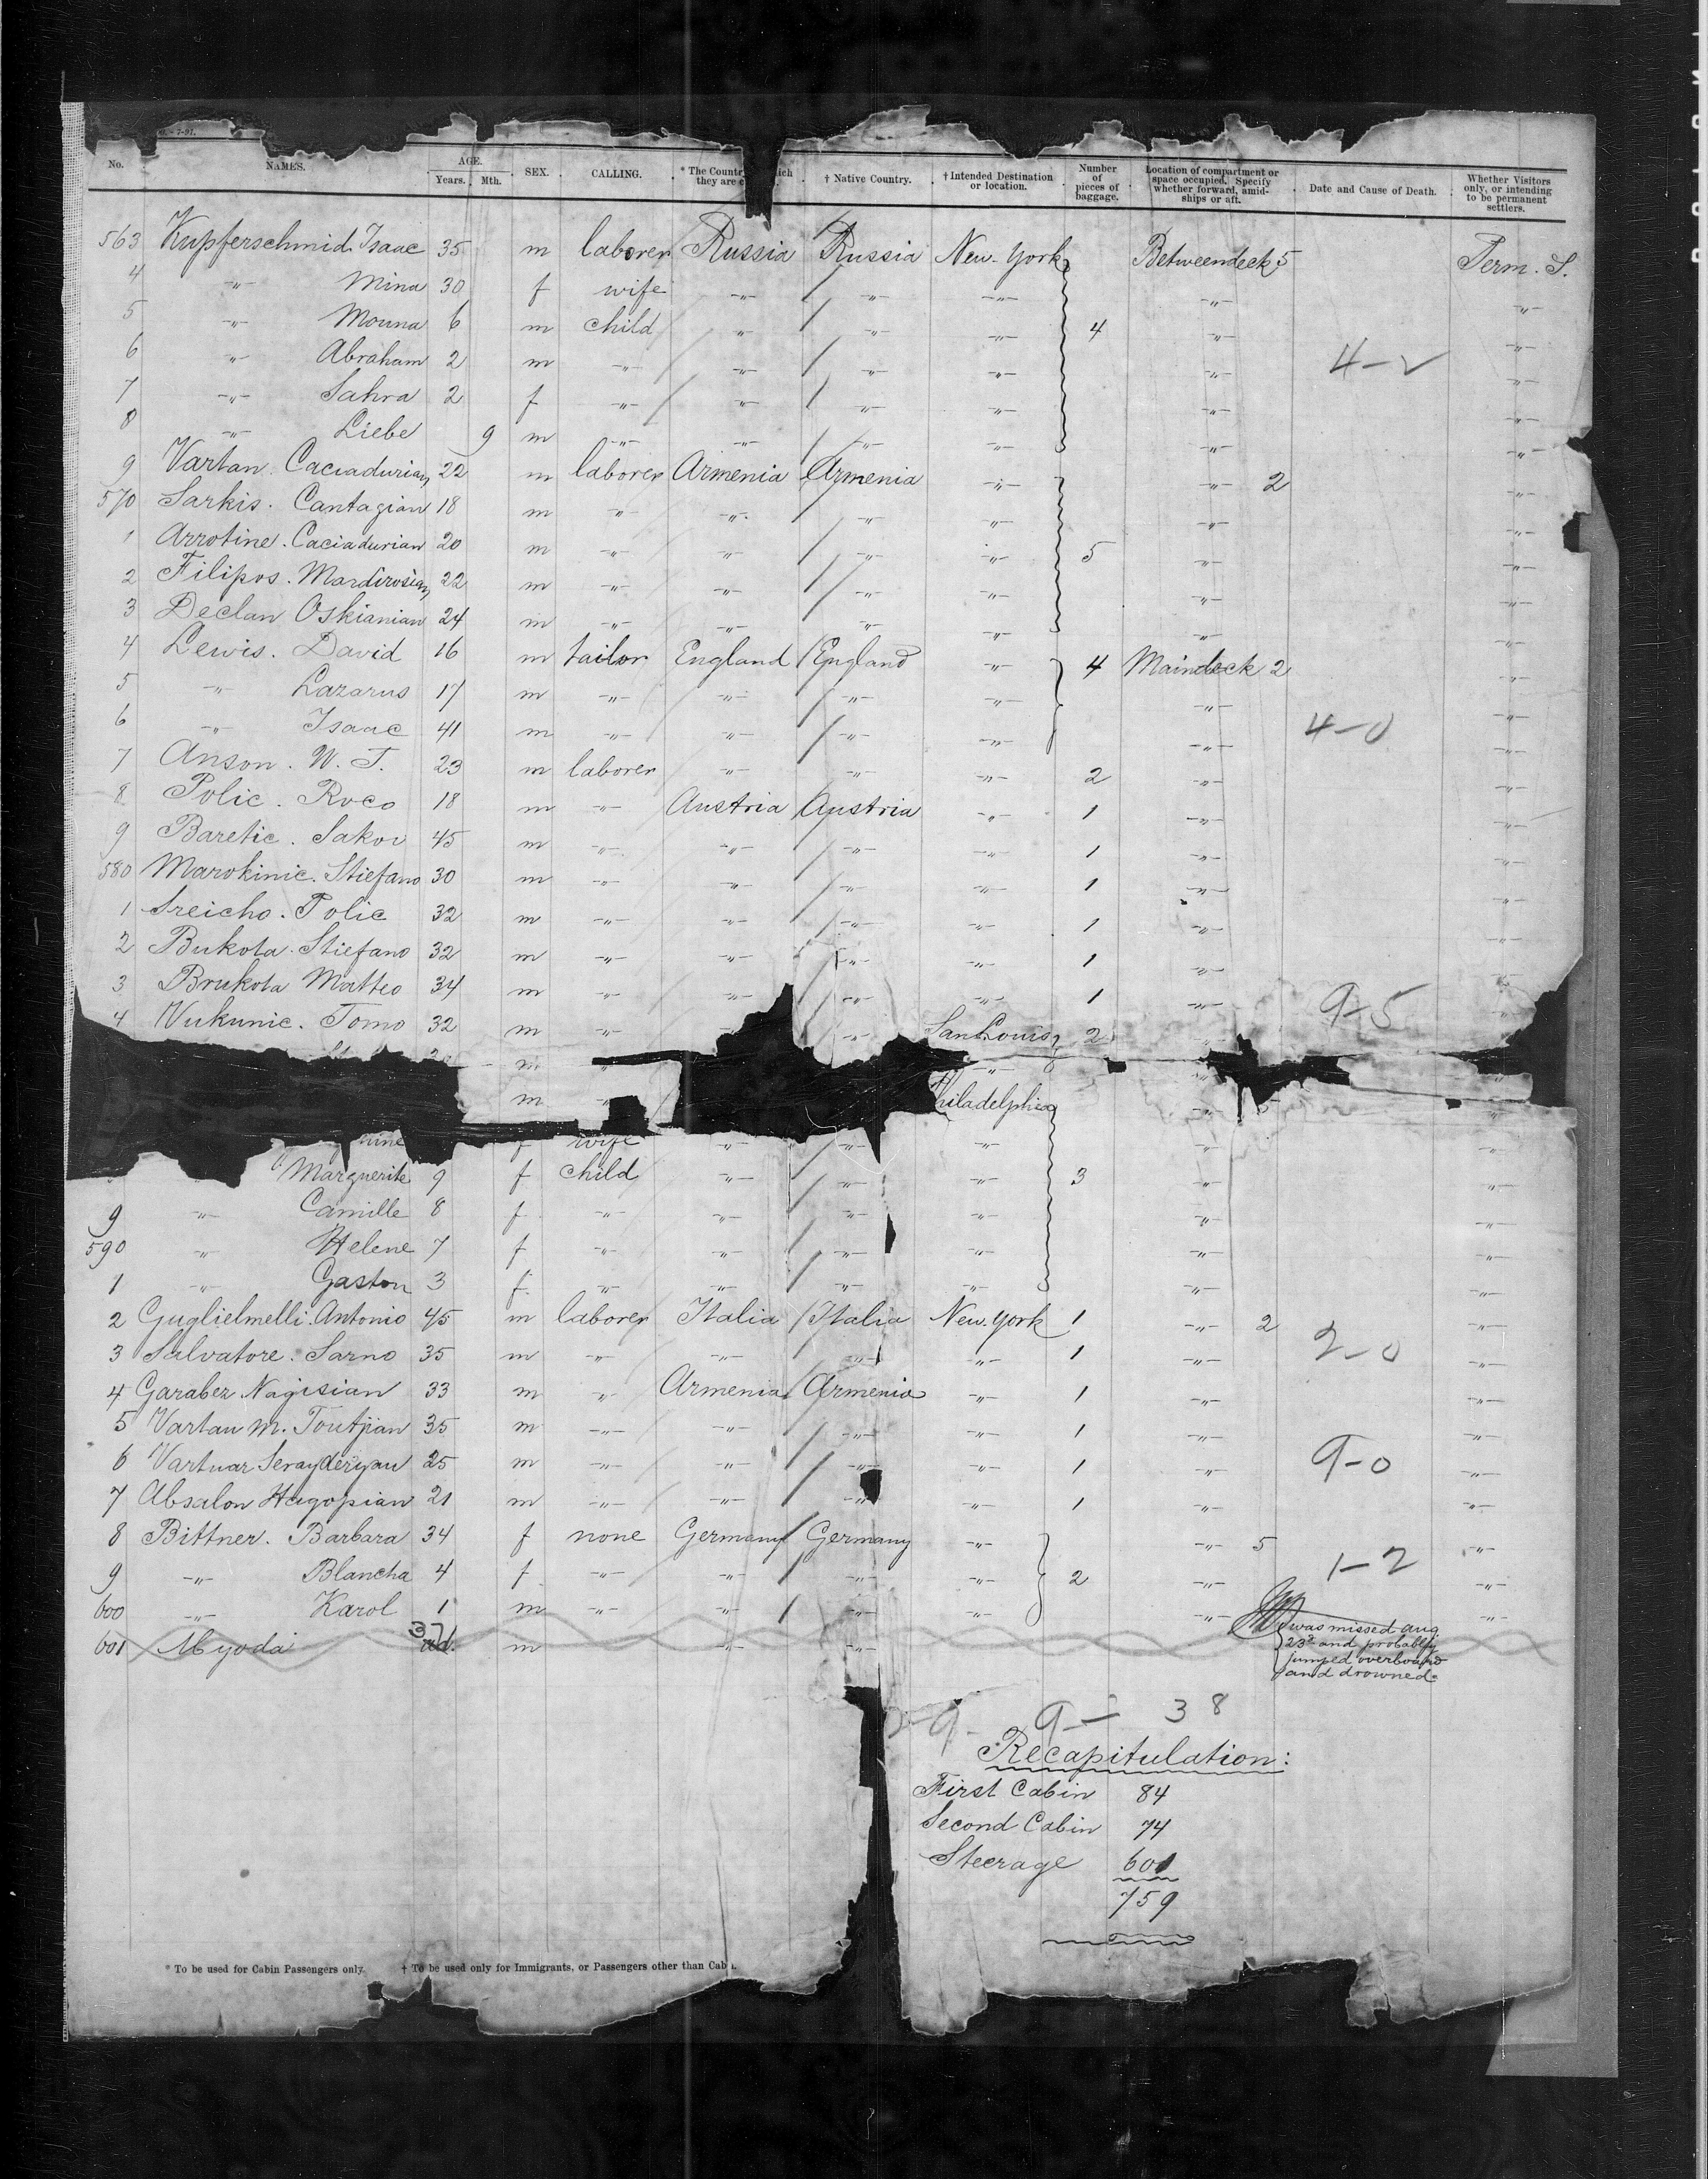 - 7-97.
No. NAMES. AGE. Years. Mth. SEX. CALLING. * The Country which they are † Native Country. † Intended Destination or location. Number of pieces of baggage. Location of compartment or space occupied. Specify whether forward, amidships or aft. Date and Cause of Death. Whether Visitors only, or intending to be permanent settlers.
563 Kupferschmid. Isaac 35 m laborer Russia Russia New-York Betweendeck 5 Perm. S.
4 -"- Mina 30 f wife -"- -"- -"- -"- -"-
5 -"- Mouna 6 m child -"- -"- -"- 4 -"- -"-
6 -"- Abraham 2 m -"- -"- -"- -"- -"- 4-✓ -"-
7 -"- Sahra 2 f -"- -"- -"- -"- -"- -"-
8 -"- Liebe 9 m -"- -"- -"- -"- -"- -"-
9 Vartan. Caciadurian 22 m laborer Armenia Armenia -"- -"- 2 -"-
570 Sarkis. Cantagian 18 m -"- -"- -"- -"- -"- -"-
1 Arrotine. Caciadurian 20 m -"- -"- -"- -"- 5 -"- -"-
2 Filipos. Mardirosian 22 m -"- -"- -"- -"- -"- -"-
3 Declan Oskianian 24 m -"- -"- -"- -"- -"- -"-
4 Lewis. David 16 m tailor England England -"- 4 Maindeck 2 -"-
5 -"- Lazarus 17 m -"- -"- -"- -"- -"- -"-
6 -"- Isaac 41 m -"- -"- -"- -"- -"- 4-0 -"-
7 Anson. W. T. 23 m laborer -"- -"- -"- 2 -"- -"-
8 Polic. Roco 18 m -"- Austria Austria -"- 1 -"- -"-
9 Baretic. Jakov 45 m -"- -"- -"- -"- 1 -"- -"-
580 Marokinic. Stiefano 30 m -"- -"- -"- -"- 1 -"- -"-
1 Sreicho. Polic 32 m -"- -"- -"- -"- 1 -"- -"-
2 Bukota. Stiefano 32 m -"- -"- -"- -"- 1 -"- -"-
3 Brukota Matteo 34 m -"- -"- -"- -"- 1 -"- 9-5 -"-
4 Vukunic. Tomo 32 m -"- -"- San Louis 2 -"-
m -"- -"- -"-
m hiladelphia -"- 5 -"-
nine f wife -"- -"- -"- -"- -"-
Marguerite 9 f child -"- -"- -"- 3 -"- -"-
9 -"- Camille 8 f -"- -"- -"- -"- -"- -"-
590 -"- Helene 7 f -"- -"- -"- -"- -"- -"-
1 -"- Gaston 3 f -"- -"- -"- -"- -"- -"-
2 Guglielmelli. Antonio 45 m laborer Italia Italia New-York 1 -"- 2 2-0 -"-
3 Salvatore. Sarno 35 m -"- -"- -"- -"- 1 -"- -"-
4 Garabez Nagisian 33 m -"- Armenia Armenia -"- 1 -"- -"-
5 Vartan M. Toutjian 35 m -"- -"- -"- -"- 1 -"- -"-
6 Vartuar Serayderyan 25 m -"- -"- -"- -"- 1 -"- 9-0 -"-
7 Absalon Hagopian 21 m -"- -"- -"- -"- 1 -"- -"-
8 Bittner. Barbara 34 f none Germany Germany -"- -"- 5 -"-
9 -"- Blancha 4 f -"- -"- -"- -"- 2 -"- 1-2 -"-
600 -"- Karol 1 m -"- -"- -"- -"- -"- -"-
601 Myoda 37 ad. m -"- -"- was missed aug.
23d and probably
jumped overboard
and drowned.
9- 9- 38
Recapitulation:
First Cabin 84
Second Cabin 74
Steerage 601
759
* To be used for Cabin Passengers only. † To be used only for Immigrants, or Passengers other than Cab